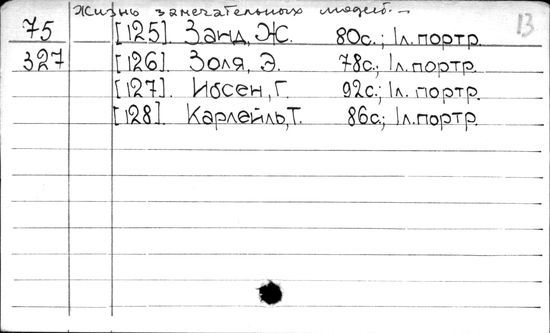 Жизнь замечательных людей.— 13
75 [125]. Занд, Ж. 80с.; 1л. портр.
327 [126]. Золя, Э. 78с.; 1л. портр.
[127]. Ибсен, Г. 92с.; 1л. портр.
[128]. Карлейль, Т. 86с.; 1л. портр.